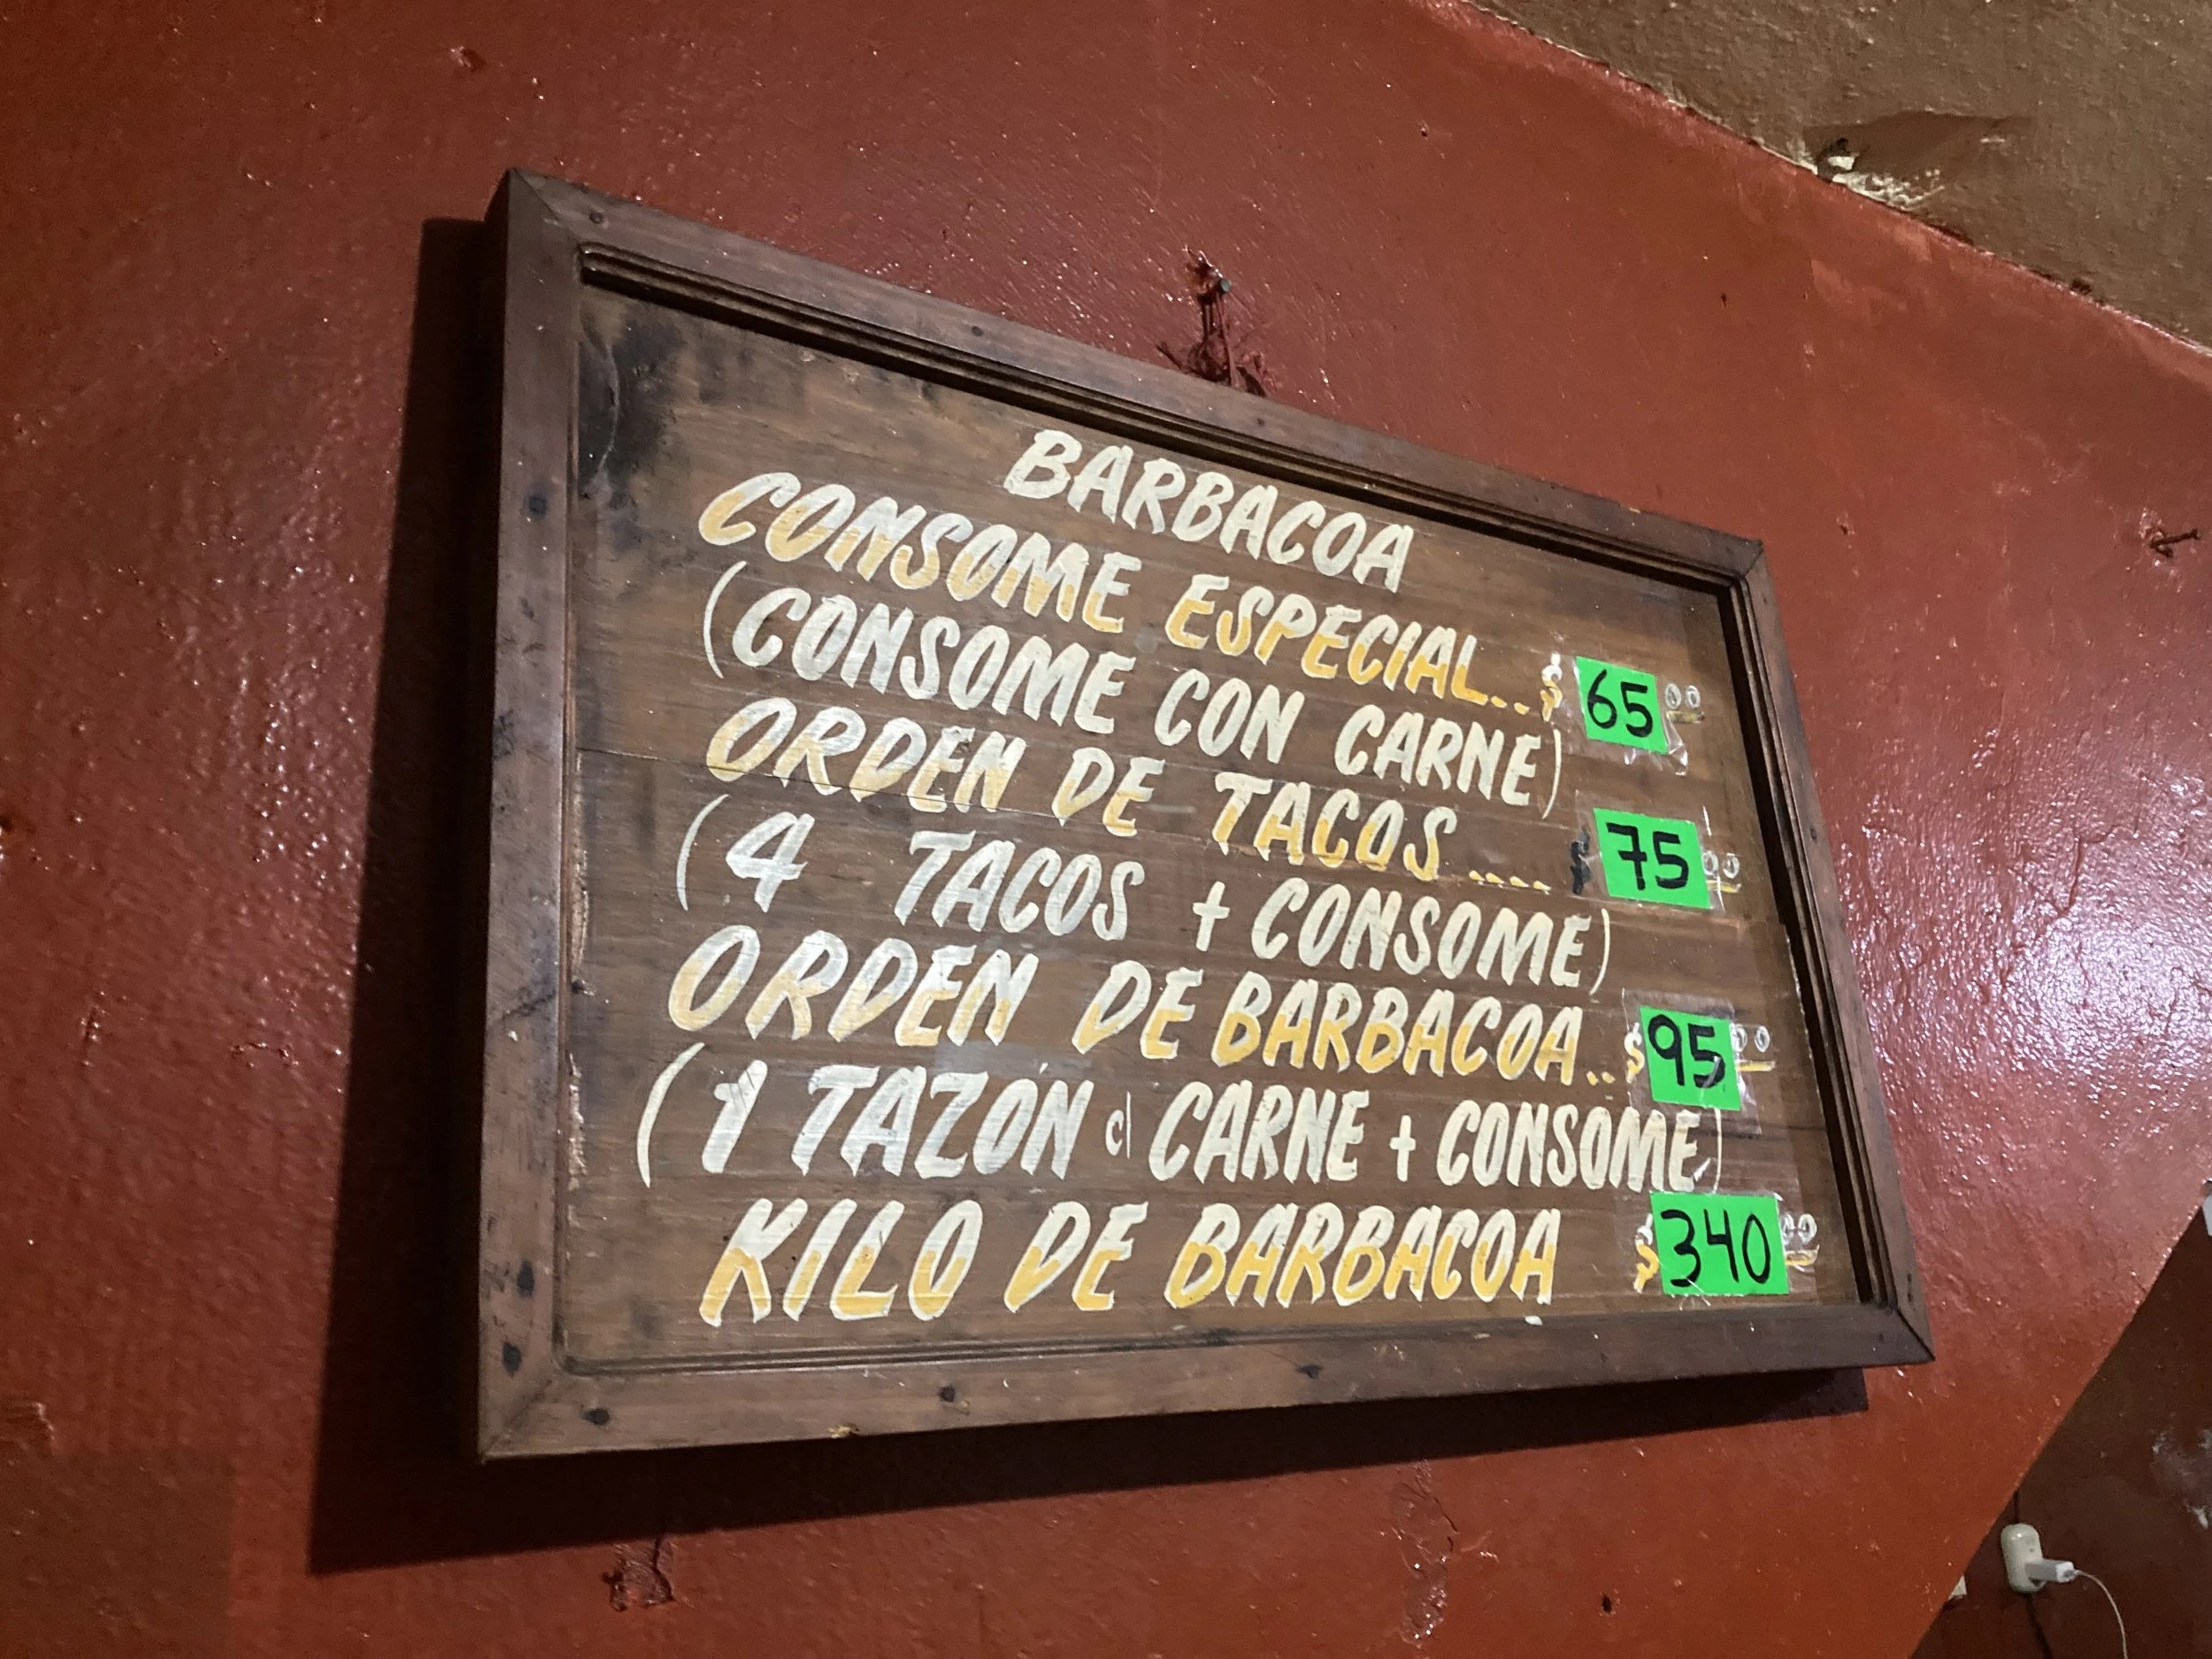 BARBACOA
CONSOME ESPECIAL.. $ 65 00
(CONSOME CON CARNE)
ORDEN DE TACOS .... $ 75 00
(4 TACOS + CONSOME)
ORDEN DE BARBACOA.. $ 95 00
(1 TAZON c/ CARNE + CONSOME)
KILO DE BARBACOA $ 340 00